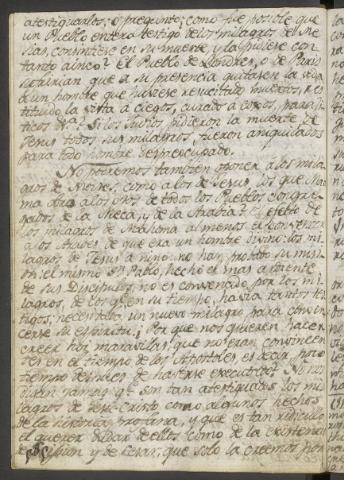 atestiguarlos; o pregunto; como fue posible que
un Pueblo entero testigo de los milagros del Me-
sias, consintiese en su muerte y la pidiese con
tanto ainco? El Pueblo de Londres, o de Paris
sufririan que a su presencia quitasen la vida
a un hombre que huviese resucitado muertos, res-
tituido la vista a ciegos, curado a cojos, parali-
ticos &a? Si los Judios pidieron la muerte de
Jesus todos sus milagros, fueron aniquilados
para todo hombre despreocupado.
No podremos tambien oponer a los mila-
gros de Moises, como a los de Jesus los que Maho-
ma obro a los ojos de todos los Pueblos congre-
gados de la Meca, y de la Arabia? El efecto de
los milagros de Mahoma al menos fue convencer
a los Arabes de que era un hombre divino: los mi-
lagros de Jesus a ninguno han probado su misi-
on: el mismo Sn Pablo, hecho el mas ardiente
de sus Discipulos, no es convencido por los mi-
lagros, de los qe en su tiempo, havia tantos tes-
tigos; necesitaba un nuevo milagro para conven-
cerse su espiritu. ¿Por que nos quieren hacer
creer hoi maravillas que no eran convincen-
tes en el tiempo de los Apostoles es decir, poco
tiempo despues de haverse executado? No nos
digan jamas qe son tan atestiguados los mi-
lagros de Jesu-Cristo, como algunos hechos
de la historia profana, y que es tan ridiculo
el querer dudar de ellos como de la existencia
de Scipion y de Cesar, que solo la creemos por